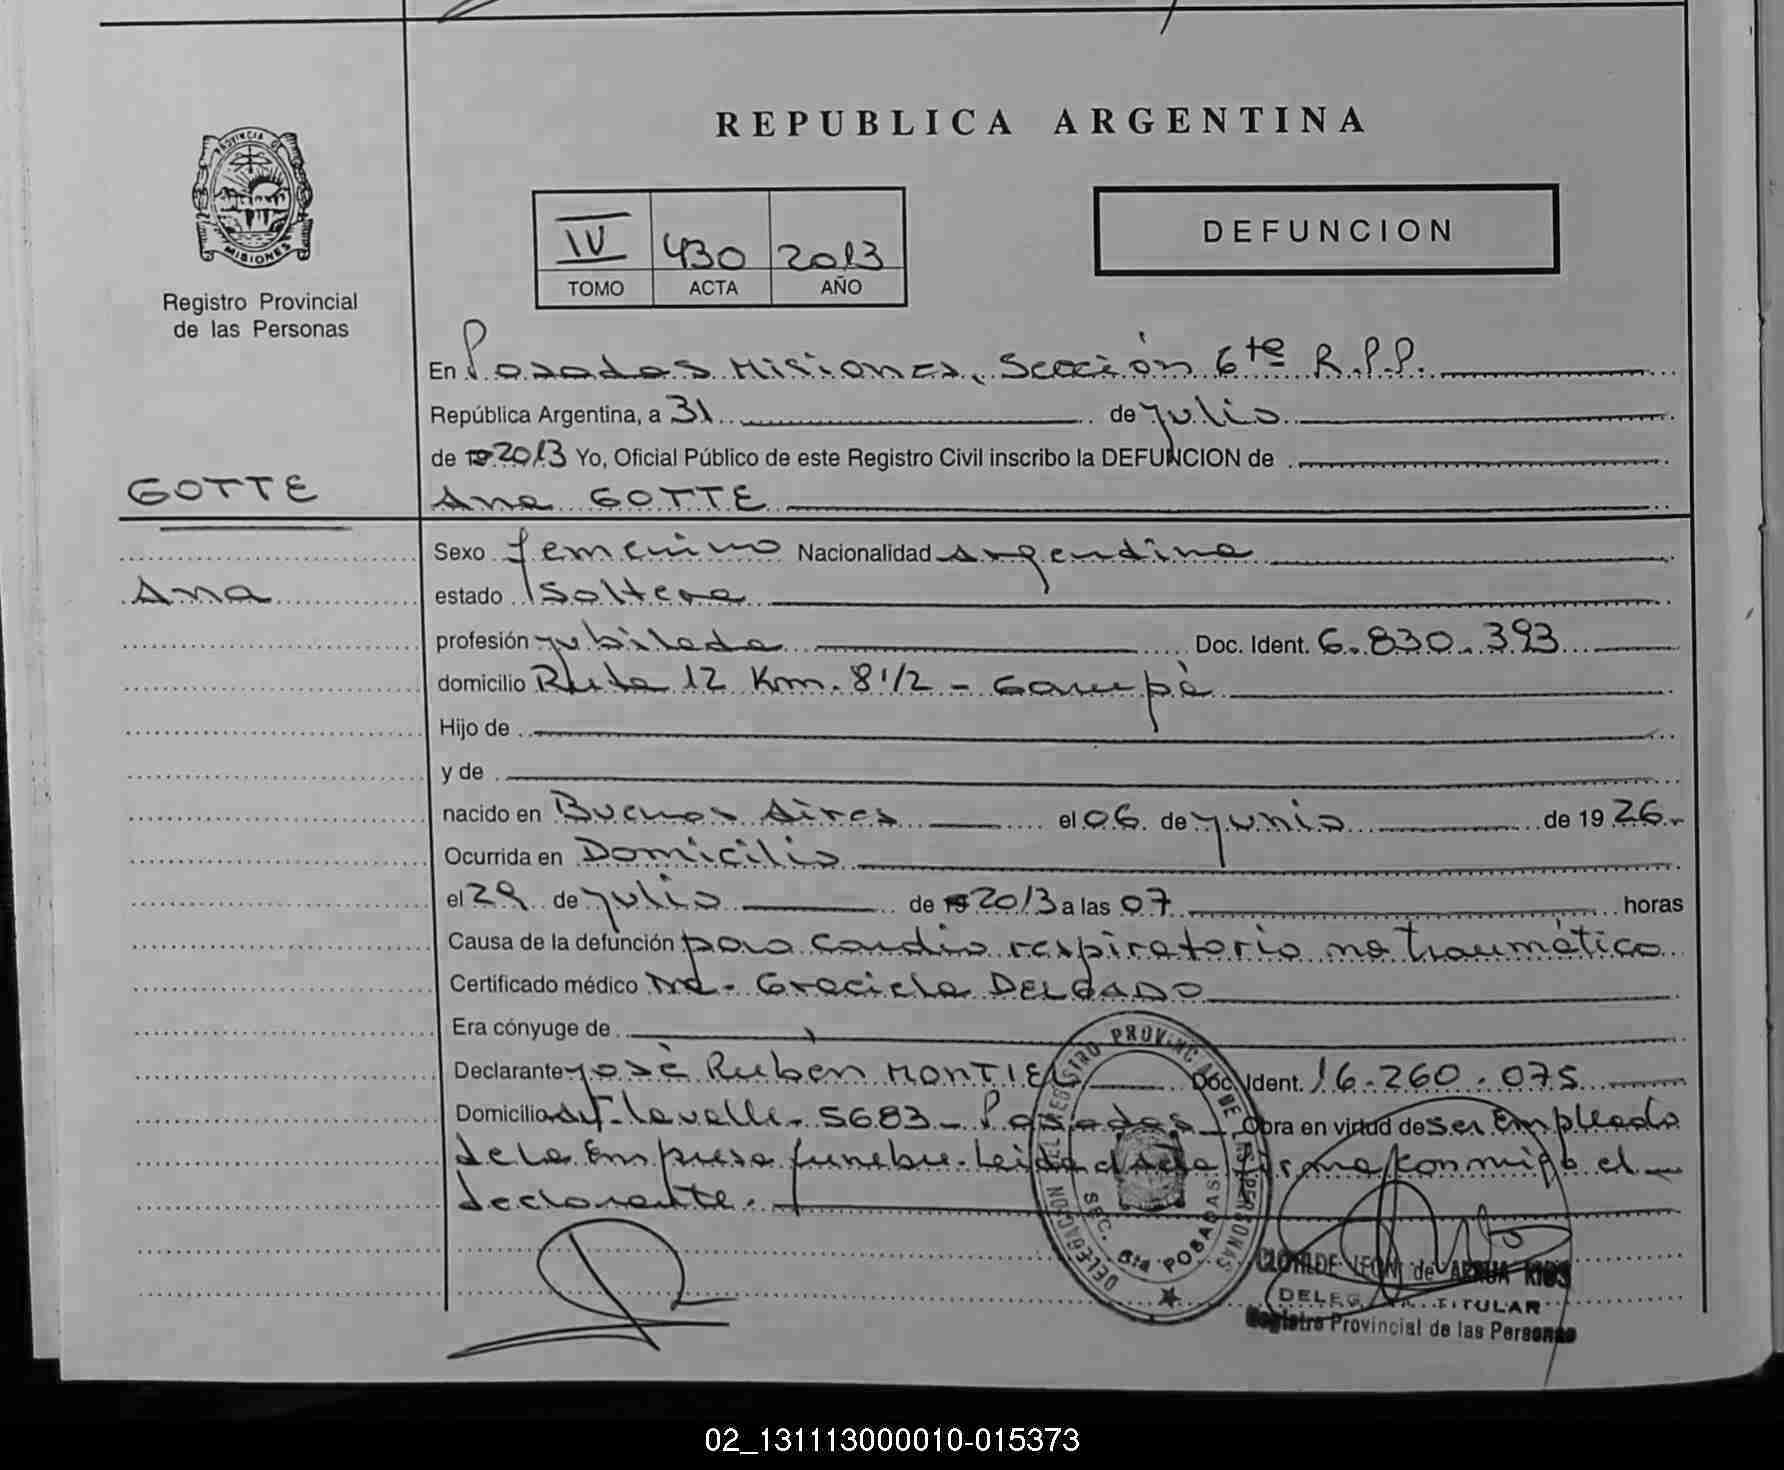 REPUBLICA ARGENTINA
PROVINCIA DE
MISIONES
Registro Provincial
de las Personas
IV 430 2013
TOMO ACTA AÑO
DEFUNCION
En Posadas Misiones, Sección 6ta R.P.P.
República Argentina, a 31 de julio
de 2013 Yo, Oficial Público de este Registro Civil inscribo la DEFUNCION de
GOTTE
Ana GOTTE
Sexo femenino Nacionalidad argentina
Ana
estado soltera
profesión jubilada Doc. Ident. 6.830.393
domicilio Ruta 12 Km. 8 1/2 - Garupá
Hijo de
y de
nacido en Buenos Aires el 06 de junio de 1926.
Ocurrida en Domicilio
el 29 de julio de 2013 a las 07 horas
Causa de la defunción paro cardio respiratorio no traumático
Certificado médico Dra. Graciela DELGADO
Era cónyuge de
Declarante José Rubén MONTIEL Doc. Ident. 16.260.075
Domicilio Lavalle 5683 - Posadas - Obra en virtud de ser Empleado
de la Empresa fúnebre. Leída el acta firma conmigo el
declarante.
DELEGACION DEL REGISTRO PROVINCIAL DE LAS PERSONAS
SEC. 6ta POSADAS
CLOTILDE LEON de
DELEGADA TITULAR
Registro Provincial de las Personas
02_131113000010-015373